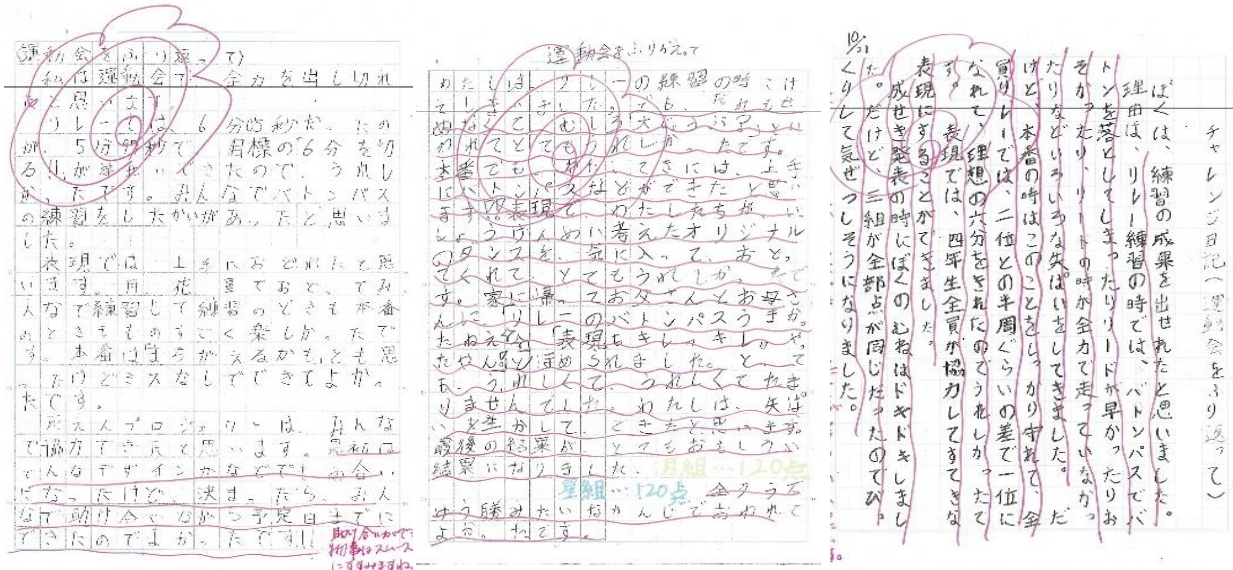 (運動会をふり返って)
私は運動会で、全力を出し切れ
たと思います。
リレーでは、6分05秒だったの
が、5分
秒で、目標の6分を切
る事ができたので、うれし
かったです。みんなでバトンパス
の練習をしたかいがあったと思いま
した。
表現では、上手におどれたと思
います。
みんなで練習して練習のときも本番
のときもものすごく楽しかったで
す。本番はまちがえるかも、とも思
ったけどミスなしでできてよかっ
たです。
応えんプロジェクトは、みんな
で協力できたと思います。最初は
どんなデザインかなどで
になったけど、決まったら、みん
なで助け合いながら予定日までに
できたのでよかったです!!
助け合いができ
物事はスムーズ
にすすみますね
運動会をふりかえって
わたしは、リレーの練習の時、こけ
てしまいました。でも、だれもせ
めなくて、むしろ「大じょう夫」といわ
れてとてもうれしかったです。
本番でも、
には、上手
にバトンパスなどができたと思い
ます。表現で、わたしたちがいっ
しょうけんめい考えたオリジナル
のダンスを、気に入って、おどっ
てくれて、とてもうれしかったで
す。家に帰ってお父さんとお母さ
んに「リレーのバトンパスうまかっ
たねえ。」「表現もキレッキレッやっ
たやん。」とほめられました。とって
も、うれしくて、うれしくてたま
りませんでした。わたしは、失ぱ
いを生かして、できたと思います。
最後の結果が、とてもおもしろい
結果になりました。
月組…120点
星組…120点
全クラスで
ゆう勝みたいなかんじで
よかったです。
10/21
チャレンジ日記(運動会をふり返って)
ぼくは、練習の成果を出せれたと思いました。
理由は、リレー練習の時では、バトンパスでバ
トンを落としてしまったりリードが早かったりお
そかったり、リートの時が全力で走っていなかっ
たりなどいろいろな失ぱいをしてきました。だ
けど、本番の時はこのことをしっかり守れて、全
員リレーでは、二位との半周ぐらいの差で一位に
なれて、理想の六分をきれたのでうれしかったで
す。表現では、四年生全員が協力してすてきな
表現にすることができました。
成せき発表の時にぼくのむねはドキドキしまし
た。だけど、三組が全部点が同じだったのでび
くりして気ぜつしそうになりました。